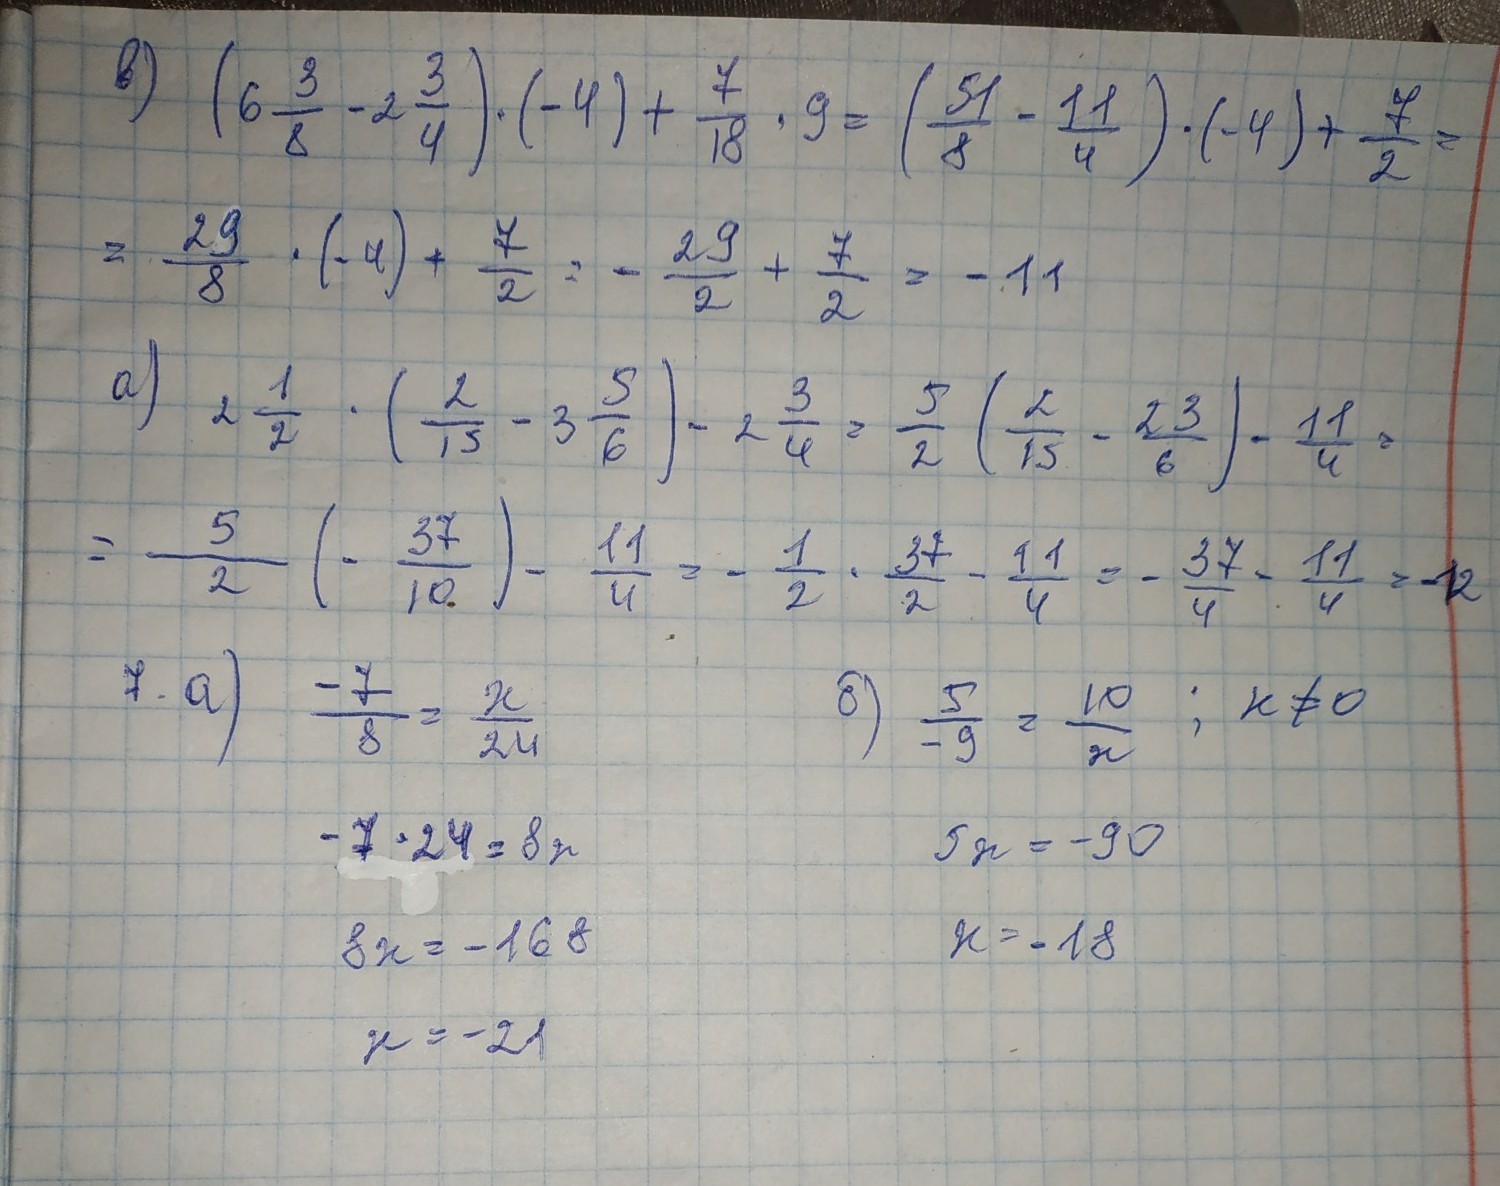 в) (6 3/8 - 2 3/4) · (-4) + 7/18 · 9 = (51/8 - 11/4) · (-4) + 7/2 =
= 29/8 · (-4) + 7/2 = - 29/2 + 7/2 = - 11
а) 2 1/2 · (2/15 - 3 5/6) - 2 3/4 = 5/2 (2/15 - 23/6) - 11/4 =
= 5/2 (- 37/10) - 11/4 = - 1/2 · 37/2 - 11/4 = - 37/4 - 11/4 = -12
7. а) -7/8 = x/24 б) 5/-9 = 10/x ; x ≠ 0
-7 · 24 = 8x 5x = -90
8x = -168 x = -18
x = -21